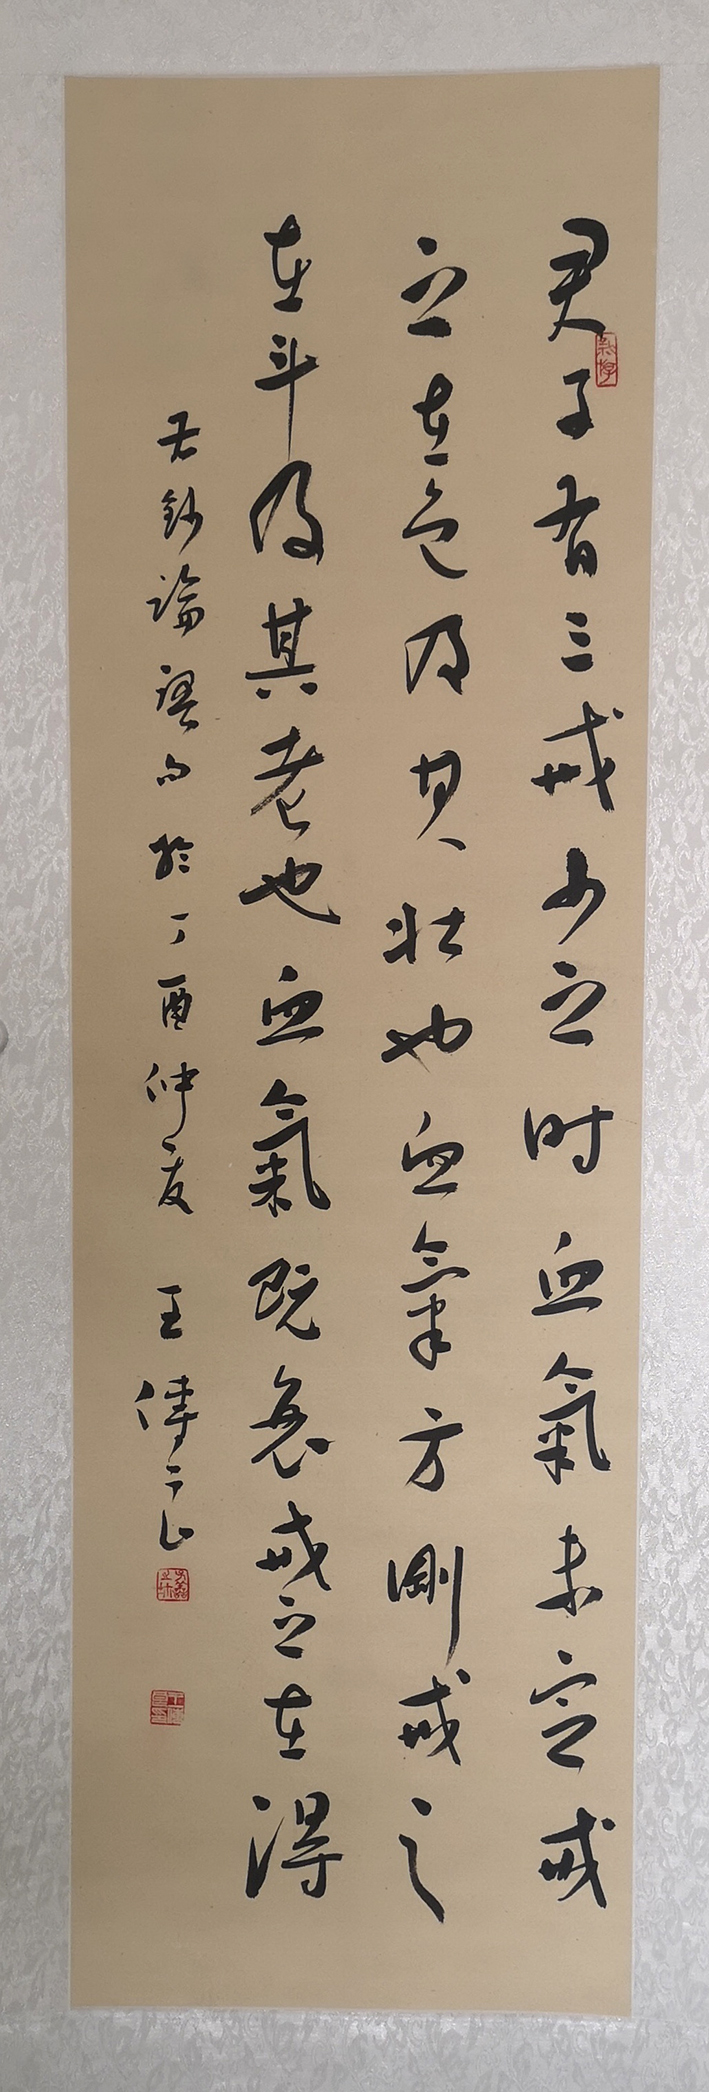 君子有三戒少之時血氣未定戒
之在色及其壯也血氣方剛戒之
在斗及其老也血氣既衰戒之在得
右鈔論語句於丁酉仲夏 王傳